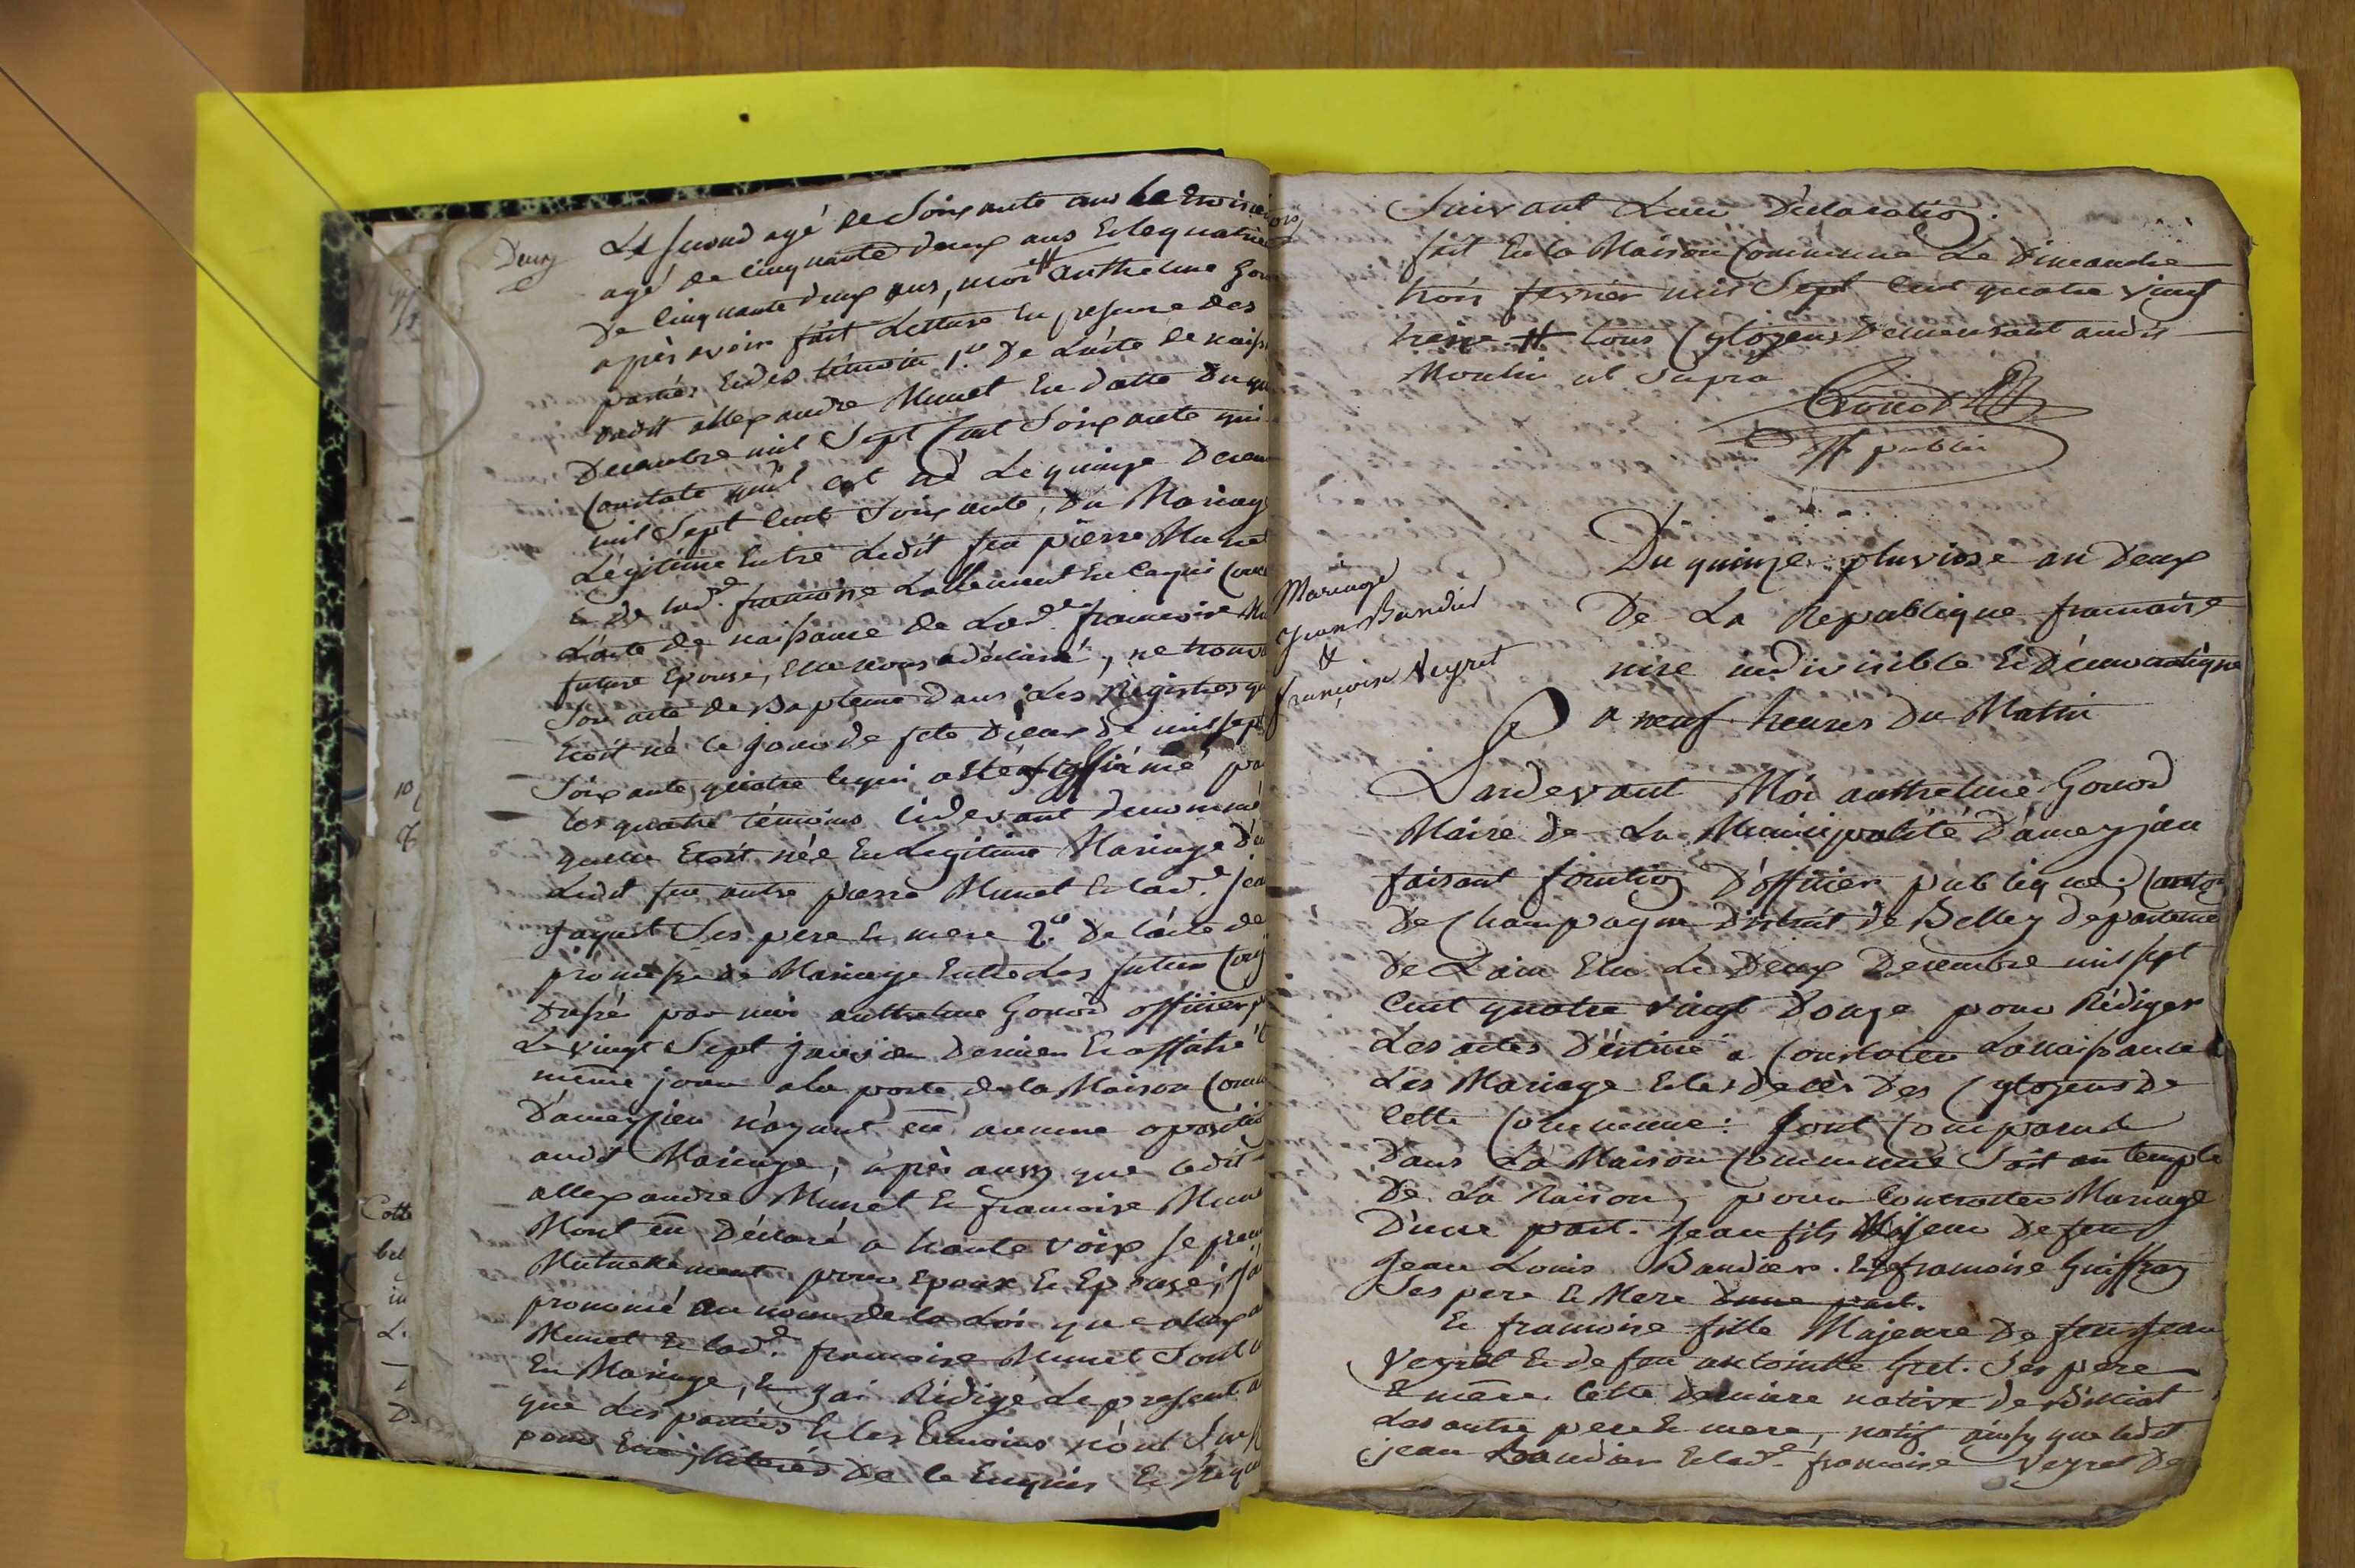 Deux
Le second agé de Soixante ans Le troisie
agé de Cinquante deux ans Et le quatrie
De Cinquante deux ans, moi antheline Gon
après avoir fait Lecture En presence des
parties Et des témoin 1.º De L'acte de naiss
dudit allexandre Munet En datte Du
Decembre mil Sept Cent Soixante
Constate qu'il est né Le quinze Decem
mil Sept Cent Soixante, Du Mariage
Légitime Entre Ledit feu pierre Munet
& de lad.e francoise Lallement
L'acte de naissance de Lad.e francoise Mu
future Epouse, Elle nous a déclaré, ne trouv
Son acte de Bapteme dans Les Régistres qu
Etoit né le jour de fete Dieux de mil sept
Soixante quatre ce qui a été affirmé pa
les quatre témoins Cidevant denommé
quelle Etoit née En Legitime Mariage D'en
Ledit feu autre pierre Munet & lad.e Jea
Jaquet Ses pere & mere 2.º De l'acte de
promesse de Mariage Entre Les futur Conj
Dressé par moi antheline Gonod officier p
Le vingt Sept janvier Dernier Et affiché
même jour a la porte de la Maison Comm
D'ameyzieu n'ayant eu aucune oposition
audit Mariage, après aussy que ledit
allexandre Munet & francoise Mun
Mont eu Déclaré a haute voix se pren
Mutuellement pour Epoux & Epouse, j'ai
prononcé au nom de la Loi que allexa
Munet & lad.e francoise Munet Sont u
En Mariage, & j'ai Rédigé Le present a
que Les parties & les temoins n'ont
pour de le Enquis & Requi
Cotte
bel
in
Suivant Leur Déclaration.
fait En la Maison Commune Le Dimanche
trois fevrier mil Sept Cent quatre vingt
treize # tous Cytoyens Demeurant audit
Moulin ut Supra
Gonod
off public
Mariage
Jean Bandier
&
françoise Veyret
Du quinze pluviose an Deux
De La Republique francaise
une indivisible & Démocratique
a neuf heures Du Matin
Pardevant Moi antheline Gonod
Maire de La Municipalité D'ameyzieu
faisant fonction D'officier publique, Canton
De Champagne District de Belley départeme
De L'ain Elu Le Deux Decembre mil sept
Cent quatre vingt Douze pour Rédiger
Les actes D'éstiné a Constater La naissance
Les Mariage & les décès Des Cytoyens de
Cette Commune: Sont Comparut
Dans La Maison Commune Soit au temple
De La Raison, pour Contracter Mariage
D'une part. Jean fils Majeur De feu
Jean Louis Bandier. & francoise Guiffray
Ses pere & Mere D'une part.
& francoise fille Majeure De feu Jean
Veyret & de feu antoinette Gret. Ses pere
& mère. Cette derniere native de Virieu
Les autre pere & mere, natif ainsy que ledit
jean Bandier & lad.e francoise Veyret De